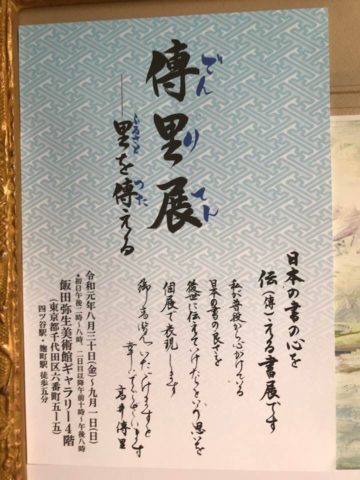 傳里展
でんりてん
―里を傳える
ふるさと
つた
日本の書の心を
伝(傳)える書展です
私が普段から心がけている
日本の書の良さを
後世に伝えてゆけたらという思いを
個展で表現します
御高覧いただけますと
幸いでございます
高井傳里
令和元年八月三十日(金)〜九月一日(日)
*初日午後二時〜八時、二日目以降午前十時〜午後八時
飯田弥生美術館ギャラリー4階
(東京都千代田区六番町五ー五)
四ツ谷駅・麹町駅 徒歩五分